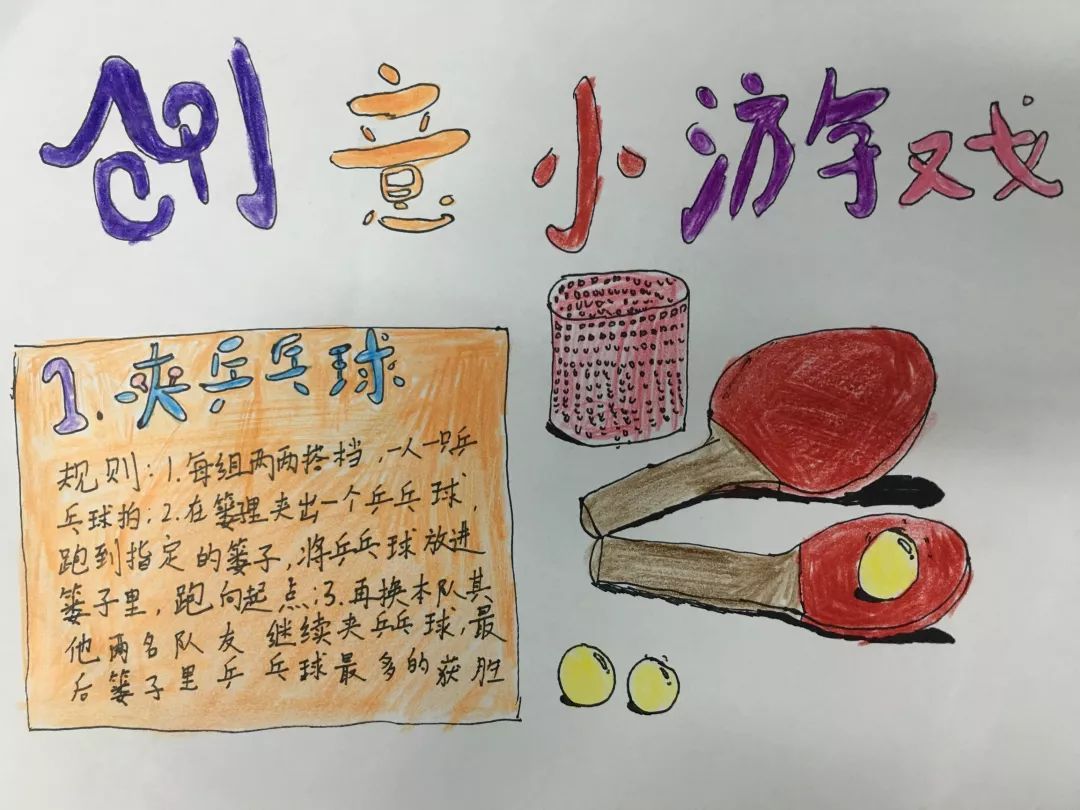 创意小游戏
1.夹乒乓球
规则:1.每组两两搭档,一人一只乒
乓球拍;2.在篓里夹出一个乒乓球,
跑到指定的篓子,将乒乓球放进
篓子里,跑向起点;3.再换本队其
他两名队友继续夹乒乓球,最
后篓子里乒乓球最多的获胜